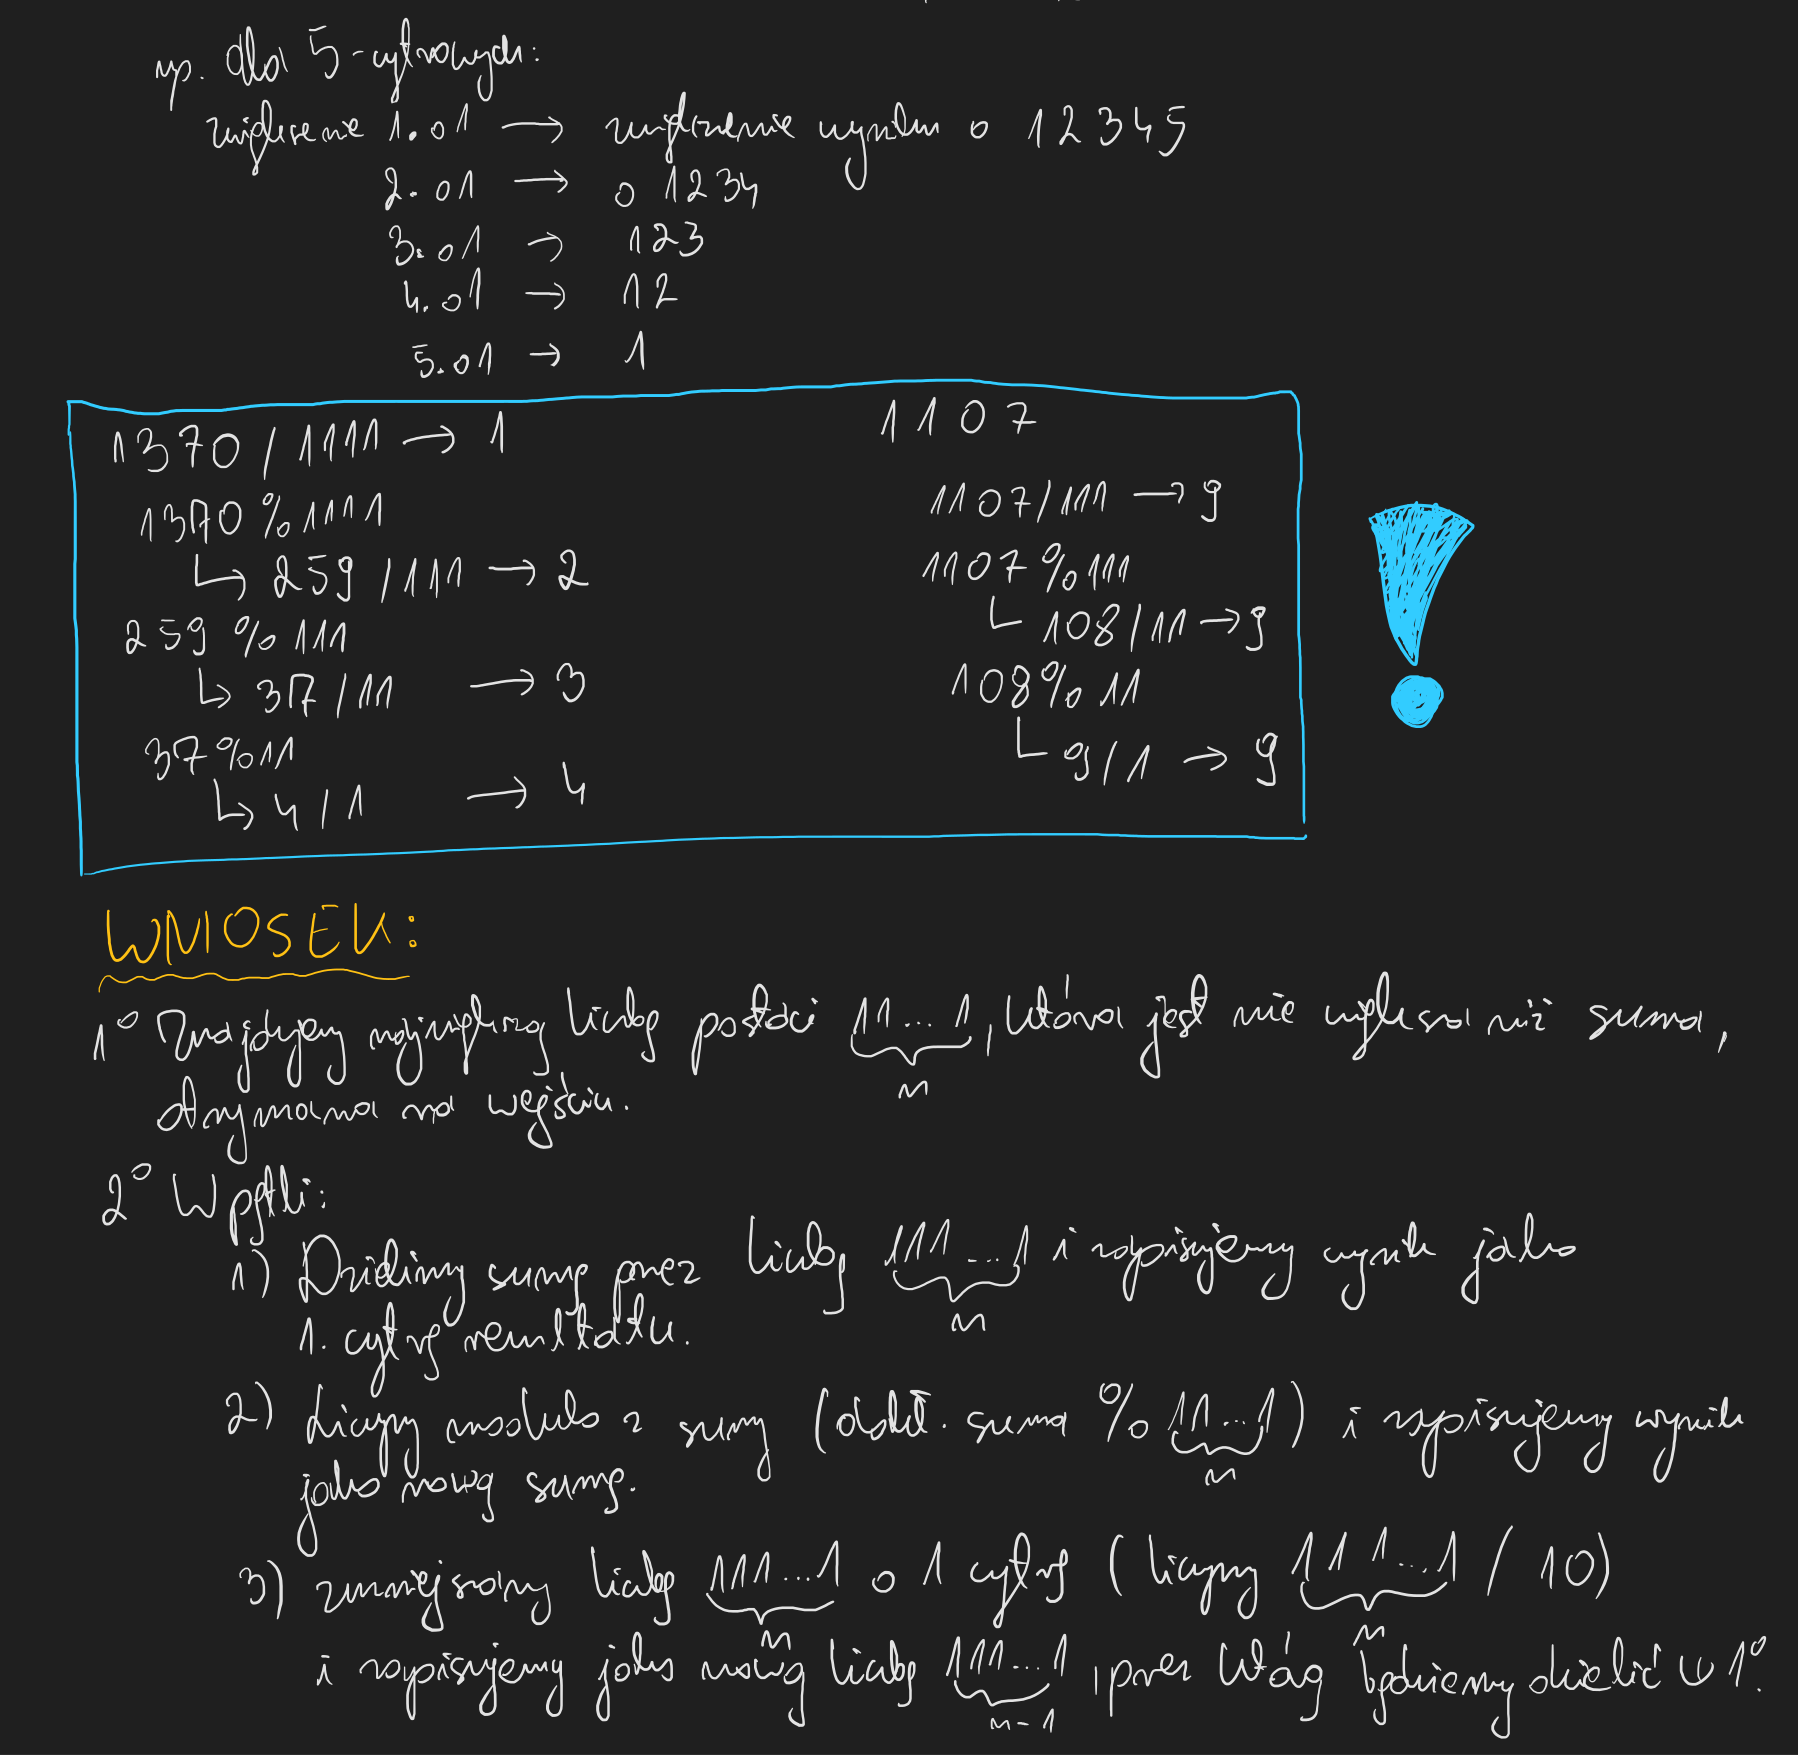 np. dla 5-cyfrowych:
zwiększenie 1. o 1 → zwiększenie wyniku o 12345
2. o 1 → o 1234
3. o 1 → 123
4. o 1 → 12
5. o 1 → 1
1370 / 1111 → 1
1370 % 1111
↳ 259 / 111 → 2
259 % 111
↳ 37 / 11 → 3
37 % 11
↳ 4 / 1 → 4
1107
1107 / 111 → 9
1107 % 111
108 / 11 → 9
108 % 11
9 / 1 → 9
WNIOSEK:
1° Znajdujemy największą liczbę postaci 11...1, która jest nie większa niż suma,
n
otrzymana na wejściu.
2° W pętli:
1) Dzielimy sumę przez liczbę 111...1 i zapisujemy wynik jako
n
1. cyfrę rezultatu.
2) Liczymy modulo z sumy (dokł. suma % 11...1) i zapisujemy wynik
n
jako nową sumę.
3) zmniejszamy liczbę 111...1 o 1 cyfrę (liczymy 111...1 / 10)
n n
i zapisujemy jako nową liczbę 111...1, przez którą będziemy dzielić w 1°.
n-1